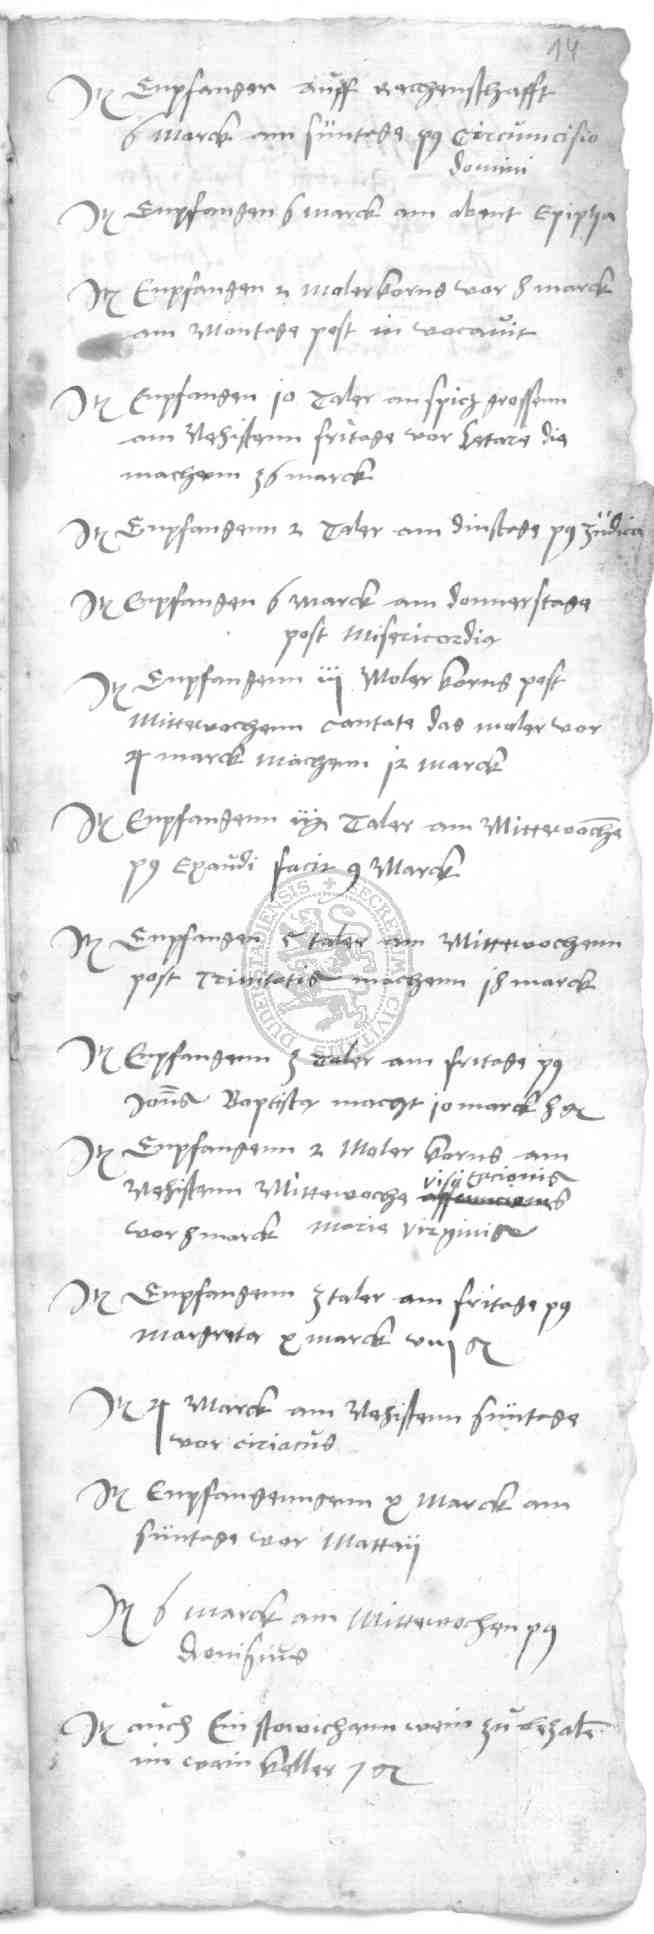 14
Itm Enpfangen auff rechenschafft
6 Marck am suntage pq Circumcisio
domini
Itm Enpfangen 6 marck am abent Epipha
Itm Enpfangen 2 Moler korns vor 8 marck
am Montage post in vocavit
Itm Enpfangen 10 Taler an spicz grossenn
am Nehistenn fritage vor Letare die
machenn 36 marck
Itm Enpfangenn 2 Taler am dinstage pq Judica
Itm Enpfangen 6 Marck am donnerstage
post Misericordia
Itm Enpfangenn iij Moler korns post
Mittewochenn cantate das moler vor
4 marck machenn 12 marck
Itm Enpfangenn Taler am Mittewoche
pq Exaudi facit 9 Marck
Itm Enpfangen 5 taler am Mittewochenn
post Trinitatis machenn 18 marck
Itm Enpfangenn 3 taler am fritage pq
Jonns Baptista macht 10 marck 8 gr
Itm Enpfangenn 2 Moler korns am
Nehistenn Mittewoche visitacionis
vor 8 marck marie virginis
Itm Enpfangenn 3 taler am fritage pq
Margreta x marck viij gr
Itm 4 Marck am Nehistenn suntage
vor ciriacus
Itm Enpfangenngenn x Marck am
suntage vor Mattaij
Itm 6 marck am Mittewochen pq
dionisius
Itm auch Ein stowichenn wein zu bezalen
im wein keller 7 gr
SECRETUM CIVITATIS DUDERSTADIENSIS